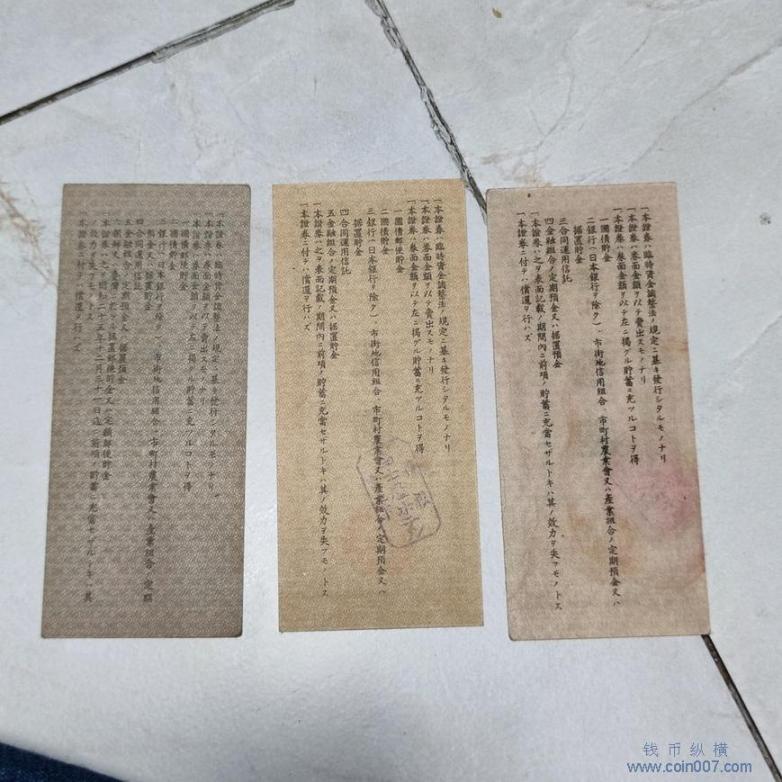 一本證券ハ臨時資金調整法ノ規定ニ基キ發行シタルモノナリ
一本證券ハ券面金額ヲ以テ賣出スモノナリ
一本證券ハ券面金額ヲ以テ左ニ揭グル貯蓄ニ充ツルコトヲ得
一國債郵便貯金
二國債貯金
三銀行(日本銀行ヲ除ク)、市街地信用組合、市町村農業會又ハ產業組合ノ定期
預金又ハ據置貯金
四合同運用信託
五金融組合ノ定期預金又ハ據置預金
六朝鮮又ハ臺灣ニ於ケル據置郵便貯金又ハ定額郵便貯金
一本證券ハ之ヲ昭和二十五年十二月三十一日迄ニ前項ノ貯蓄ニ充當セザルトキハ其
ノ效力ヲ失フモノトス
一本證券ニ付テハ償還ヲ行ハズ
一本證券ハ臨時資金調整法ノ規定ニ基キ發行シタルモノナリ
一本證券ハ券面金額ヲ以テ賣出スモノナリ
一本證券ハ券面金額ヲ以テ左ニ揭グル貯蓄ニ充ツルコトヲ得
一國債郵便貯金
二國債貯金
三銀行(日本銀行ヲ除ク)、市街地信用組合、市町村農業會又ハ產業組合ノ定期預金又ハ
據置貯金
四合同運用信託
五金融組合ノ定期預金又ハ據置貯金
一本證券ハ之ヲ表面記載ノ期間內ニ前項ノ貯蓄ニ充當セザルトキハ其ノ效力ヲ失フモノトス
一本證券ニ付テハ償還ヲ行ハズ
一本證券ハ臨時資金調整法ノ規定ニ基キ發行シタルモノナリ
一本證券ハ券面金額ヲ以テ賣出スモノナリ
一本證券ハ券面金額ヲ以テ左ニ揭グル貯蓄ニ充ツルコトヲ得
一國債郵便貯金
二銀行(日本銀行ヲ除ク)、市街地信用組合、市町村農業會又ハ產業組合ノ定期預金又ハ
據置貯金
三合同運用信託
四金融組合ノ定期預金又ハ據置預金
一本證券ハ之ヲ表面記載ノ期間內ニ前項ノ貯蓄ニ充當セザルトキハ其ノ效力ヲ失フモノトス
一本證券ニ付テハ償還ヲ行ハズ
钱币纵横
www.coin007.com